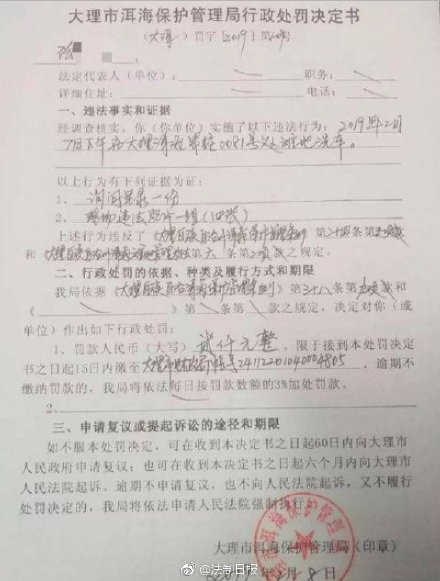 大理市洱海保护管理局行政处罚决定书
罚字[2019]第 号
法定代表人(单位): 职务:
详细住址: 电话:
一、违法事实和证据
经调查核实,你(你单位)实施了以下违法行为:2019年2月
7日下午在大理 湿地洗车。
以上行为有下列证据为证:
1、询问笔录一份
2、现场违法照片一组(10张)
上述行为违反了《大理白族自治州 条例》第二十四条第 款
和 第六条第2项款之规定。
二、行政处罚的依据、种类及履行方式和期限
我局依据《大理白族自治州 条例》第三十八条第 款和
《 》第 条第 款之规定,决定对你(或
单位)作出如下行政处罚:
1、罚款人民币(大写)贰仟元整,限于接到本处罚决定
书之日起15日内缴至大理市 帐号24112201040004805,逾期不
缴纳罚款的,我局将依法每日按罚款数额的3%加处罚款。
2、
三、申请复议或提起诉讼的途径和期限
如不服本处罚决定,可在收到本决定书之日起60日内向大理市
人民政府申请复议;也可在收到本决定书之日起六个月内向大理市
人民法院起诉。逾期不申请复议,也不向人民法院起诉,又不履行
处罚决定的,我局将依法申请人民法院强制执行。
大理市洱海保护管理局(印章)
8日
@法制日报